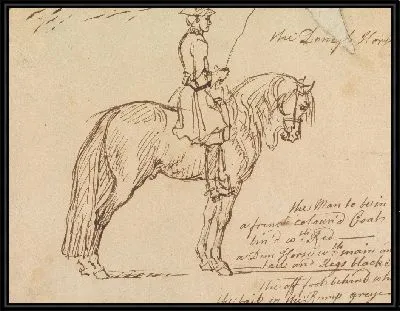 the Danish Horse
the Man to be in
a french colour'd Coat
lin'd wth Red
a Dun Horse wth main an
tail and Legs black
the off foot behind whi
the tail in the Rump greye